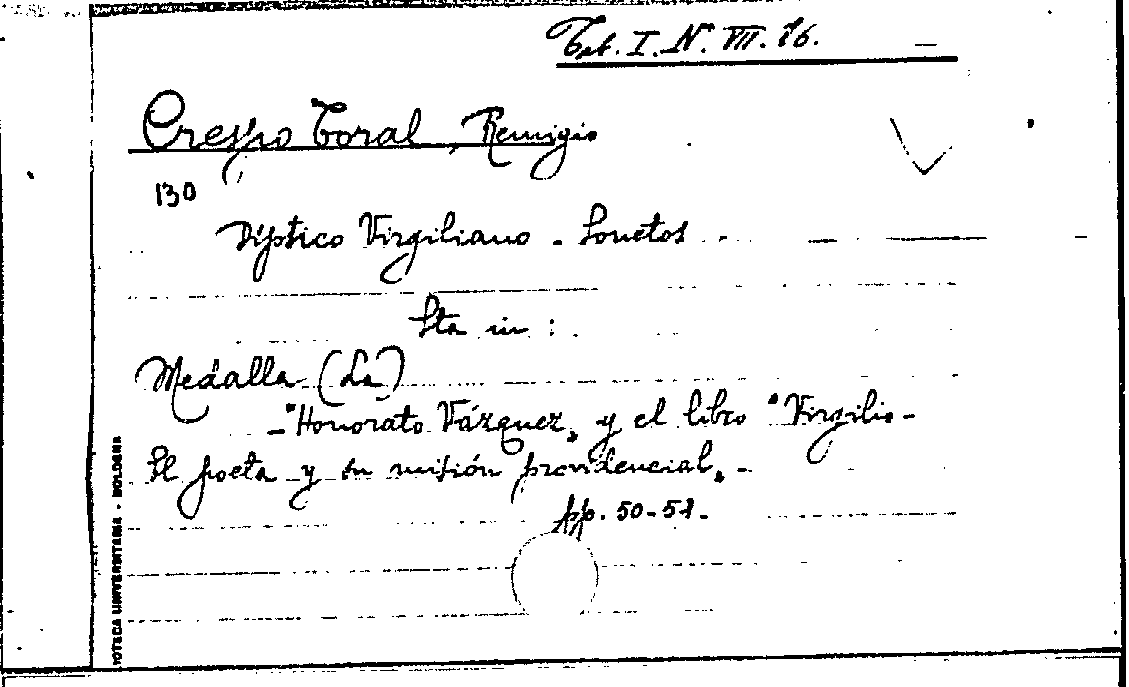 Tab. I. N. VII. 76.
Crespo Toral, Remigio
130
Díptico Virgiliano - Sonetos
Sta in:
Medalla (La)
- "Honorato Vázquez„ y el libro "Virgilio -
El poeta y su misión providencial„ -
pp. 50-51.
IOTECA UNIVERSITARIA - BOLOGNA